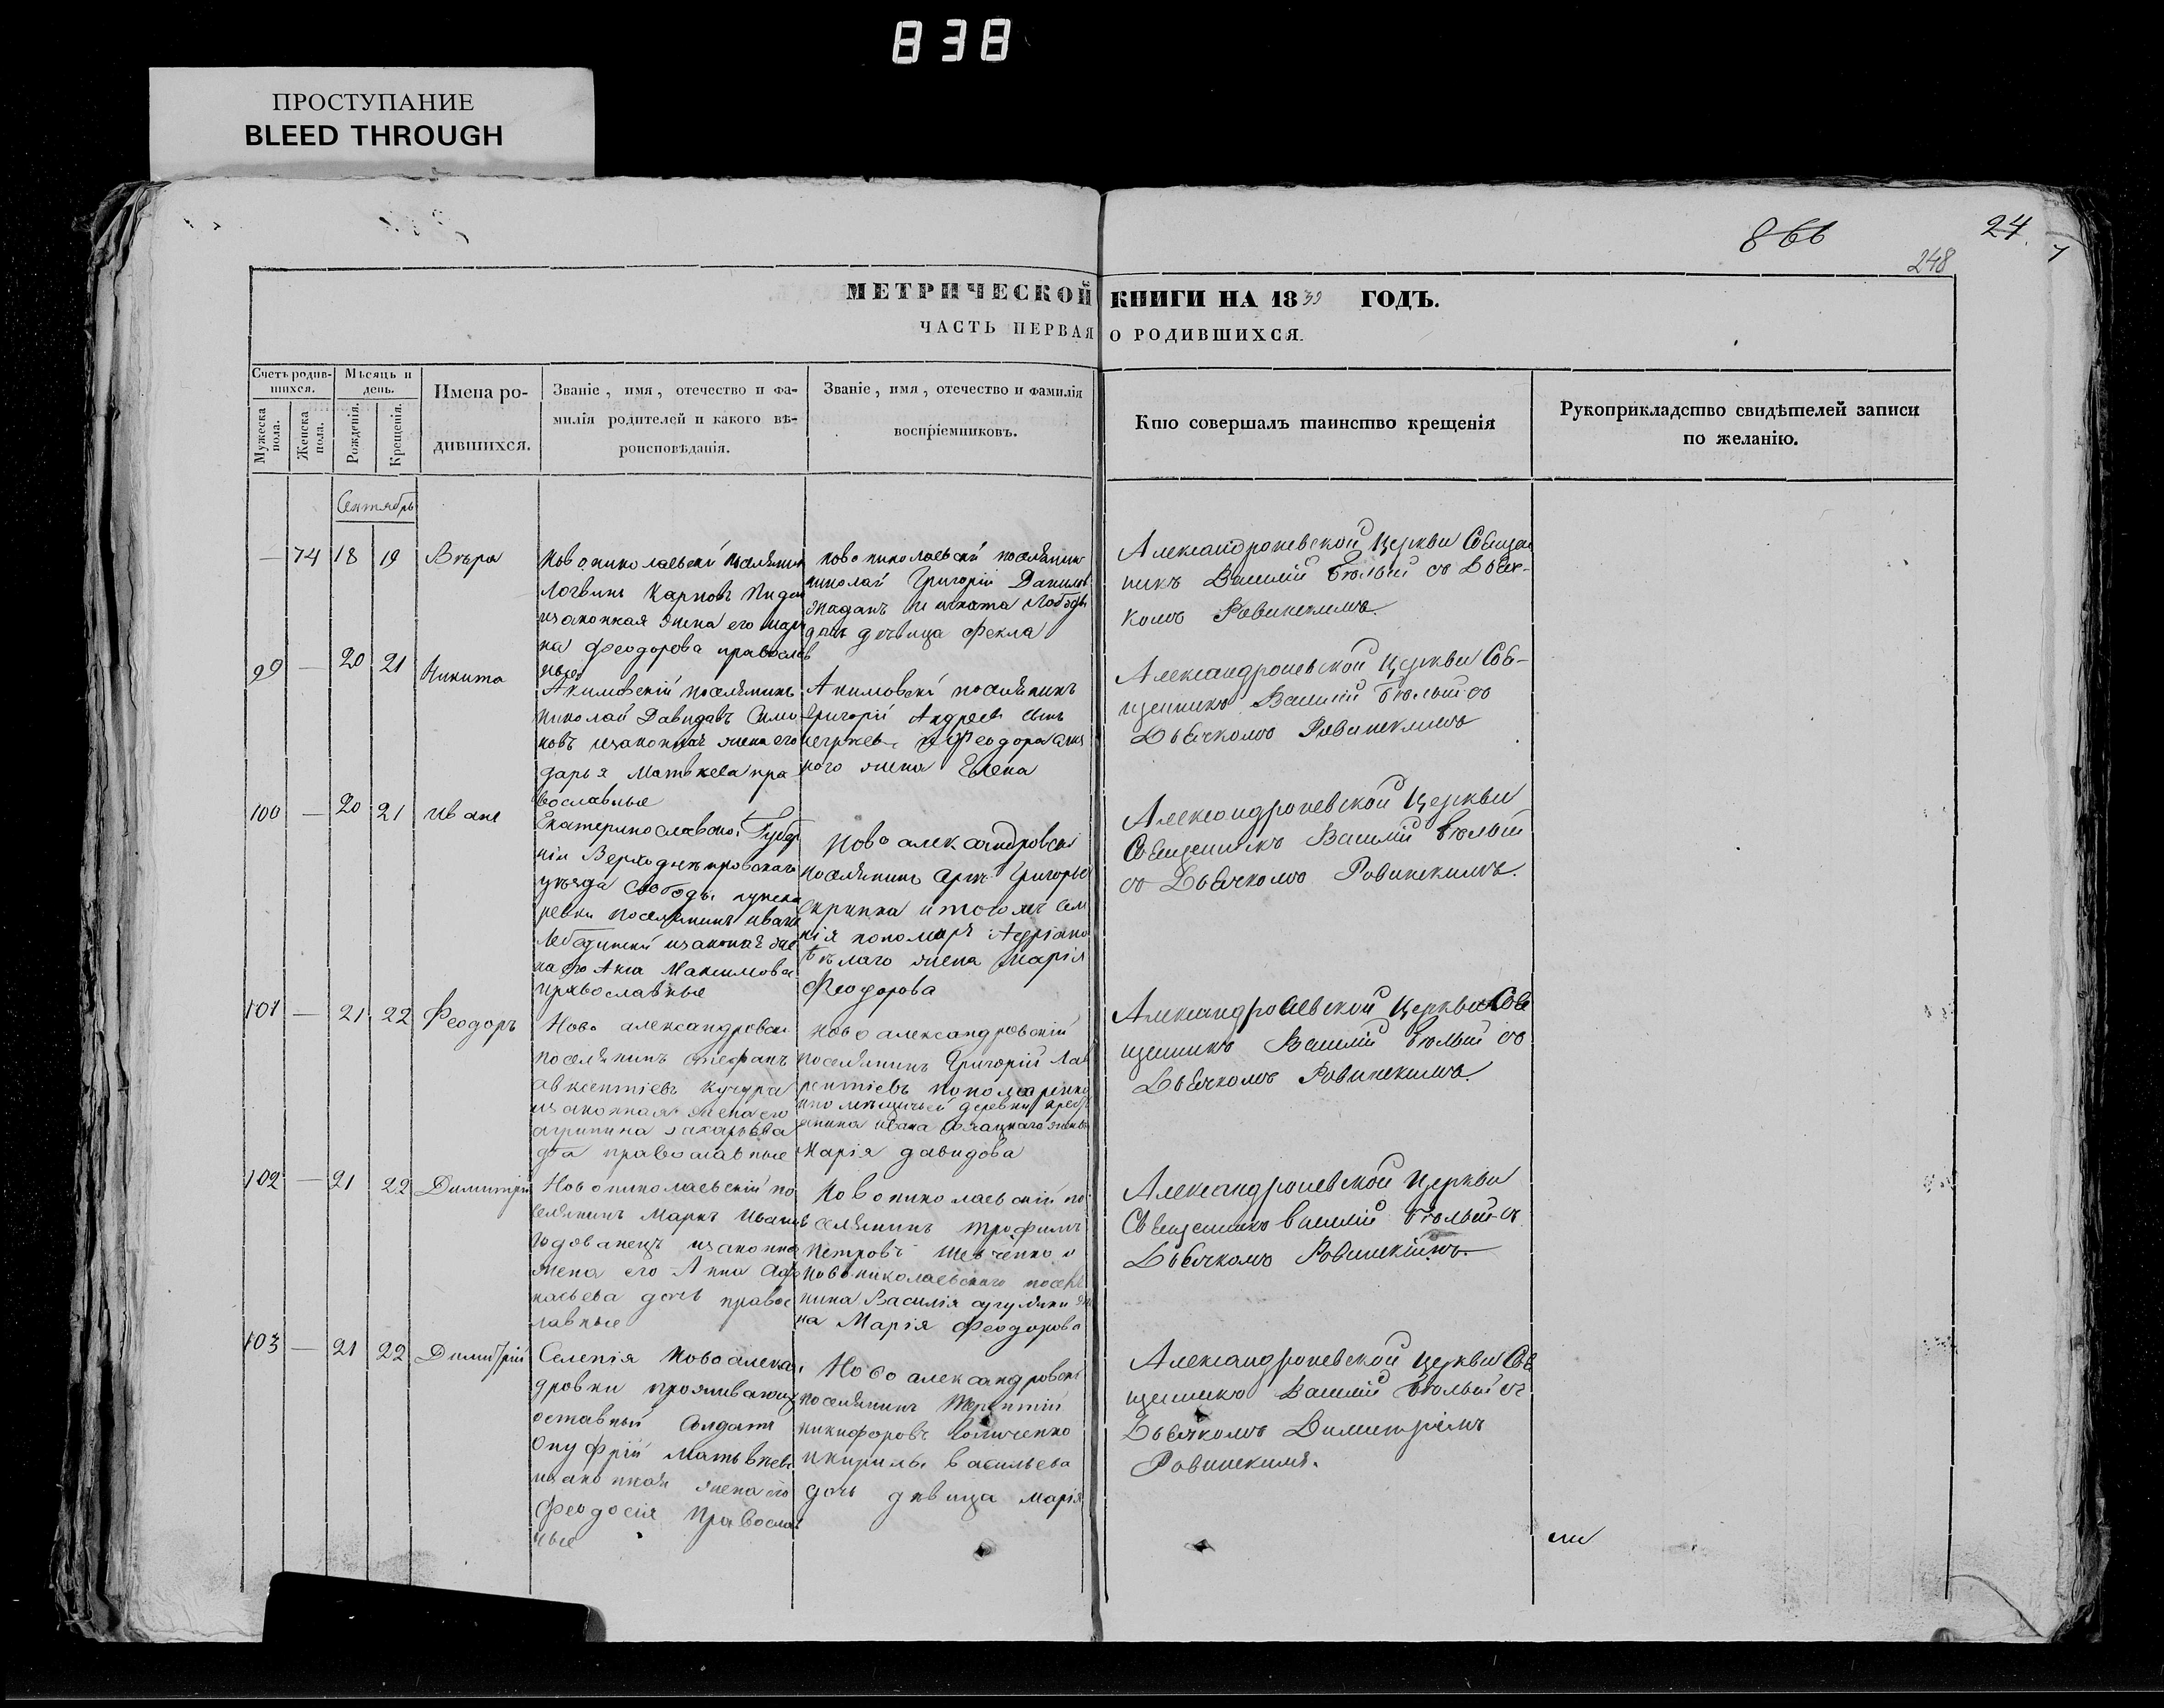 838
ПРОСТУПАНИЕ
BLEED THROUGH
866
24
248
МЕТРИЧЕСКОЙ КНИГИ НА 1839 ГОДЪ.
ЧАСТЬ ПЕРВАЯ О РОДИВШИХСЯ.
Счетъ родив-
шихся.
Мужеска пола.
Женска пола.
Мѣсяцъ и
день.
Рожденія.
Крещенія.
Имена ро-
дившихся.
Званіе, имя, отечество и фа-
милія родителей и какого вѣ-
роисповѣданія.
Званіе, имя, отечество и фамилія
воспріемниковъ.
Кто совершалъ таинство крещенія
Рукоприкладство свидѣтелей записи
по желанію.
Сентябрь
— 74 18 19 Вѣра
Новониколаевскій поселянинъ
Логвинъ Карповъ
изаконная жена его
на Феодорова православ
ные
новониколаевскій поселянинъ
николай Григорій Данилов
Жаданъ и
дочь дѣвица Фекла
Александроневской Церкви Священ
никъ Василій Бѣлый съ Дьяч-
комъ Ровинскимъ
99 — 20 21 Никита
Акимовскій поселянинъ
Николай Давидовъ Симо
новъ изаконная жена его
дарья Матвеева пра
вославные
Акимовскі поселянинъ
Григорій Андреевъ сынъ
и Феодора
ного жена Елена
Александроневской Церкви Свя-
щенникъ Василій Бѣлый съ
Дьячкомъ Ровинскимъ
100 — 20 21 Иванъ
Екатеринославской Губер
ніи Верходнѣпровскаго
уѣзда Слободы
ревки поселянинъ иванъ
Лебединскій изаконная же
на его Анна Максимова
православные
Новоалександровскі
поселянинъ Григорьев
Скрипка и тогожъ селе
нія пономаря Адріана
Бѣлаго жена Марія
Феодорова
Александроневской Церкви
Священникъ Василій Бѣлый
съ Дьячкомъ Ровинскимъ.
101 — 21 22 Феодоръ
Ново александровскі
поселянинъ Стефанъ
авксентіевъ кучура
изаконная жена его
агрипина захарьева
православные
Ново александровскій
поселянинъ Григорій Лав
рентіевъ пономаренко
помѣщичьей деревни крест
янина ивана жена
Марія давидова
Александроневской Церкви Свя
щенникъ Василій Бѣлый съ
Дьячкомъ Ровинскимъ.
102 — 21 22 Димитрій
Новониколаевскій по
селянинъ Маркъ Иванов
Годованецъ изаконна
жена его Анна Афа
насьева дочь правос
лавные
Новониколаевскій по
селянинъ Трофимъ
Петровъ Шевченко и
новониколаевского поселя
нина Василія же
на Марія Феодорова
Александроневской Церкви
Священникъ Василій Бѣлый съ
Дьячкомъ Ровинскимъ.
103 — 21 22 Димитрій
Селенія Новоалекса
дровки проживающ
отставный Солдатъ
Онуфрій Матьвѣев
изаконная жена его
Феодосія Православ
ные
Новоалександровскі
поселянинъ Терентій
никифоровъ
икирилы васильева
дочь дѣвица Марія
Александроневской Церкви Свя
щенникъ Василій Бѣлый съ
Дьячкомъ Димитріемъ
Ровинскимъ.